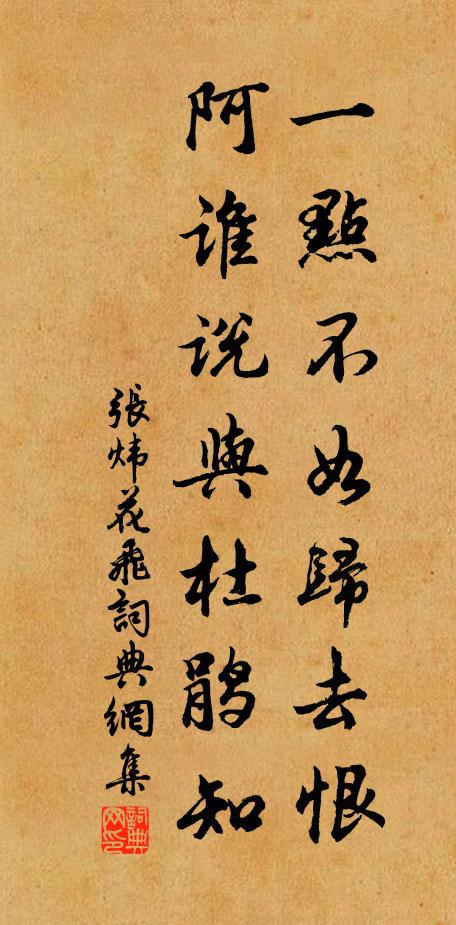 一點不如歸去恨
阿誰説與杜鵑知
張煒花飛詞典網集
詞典网印